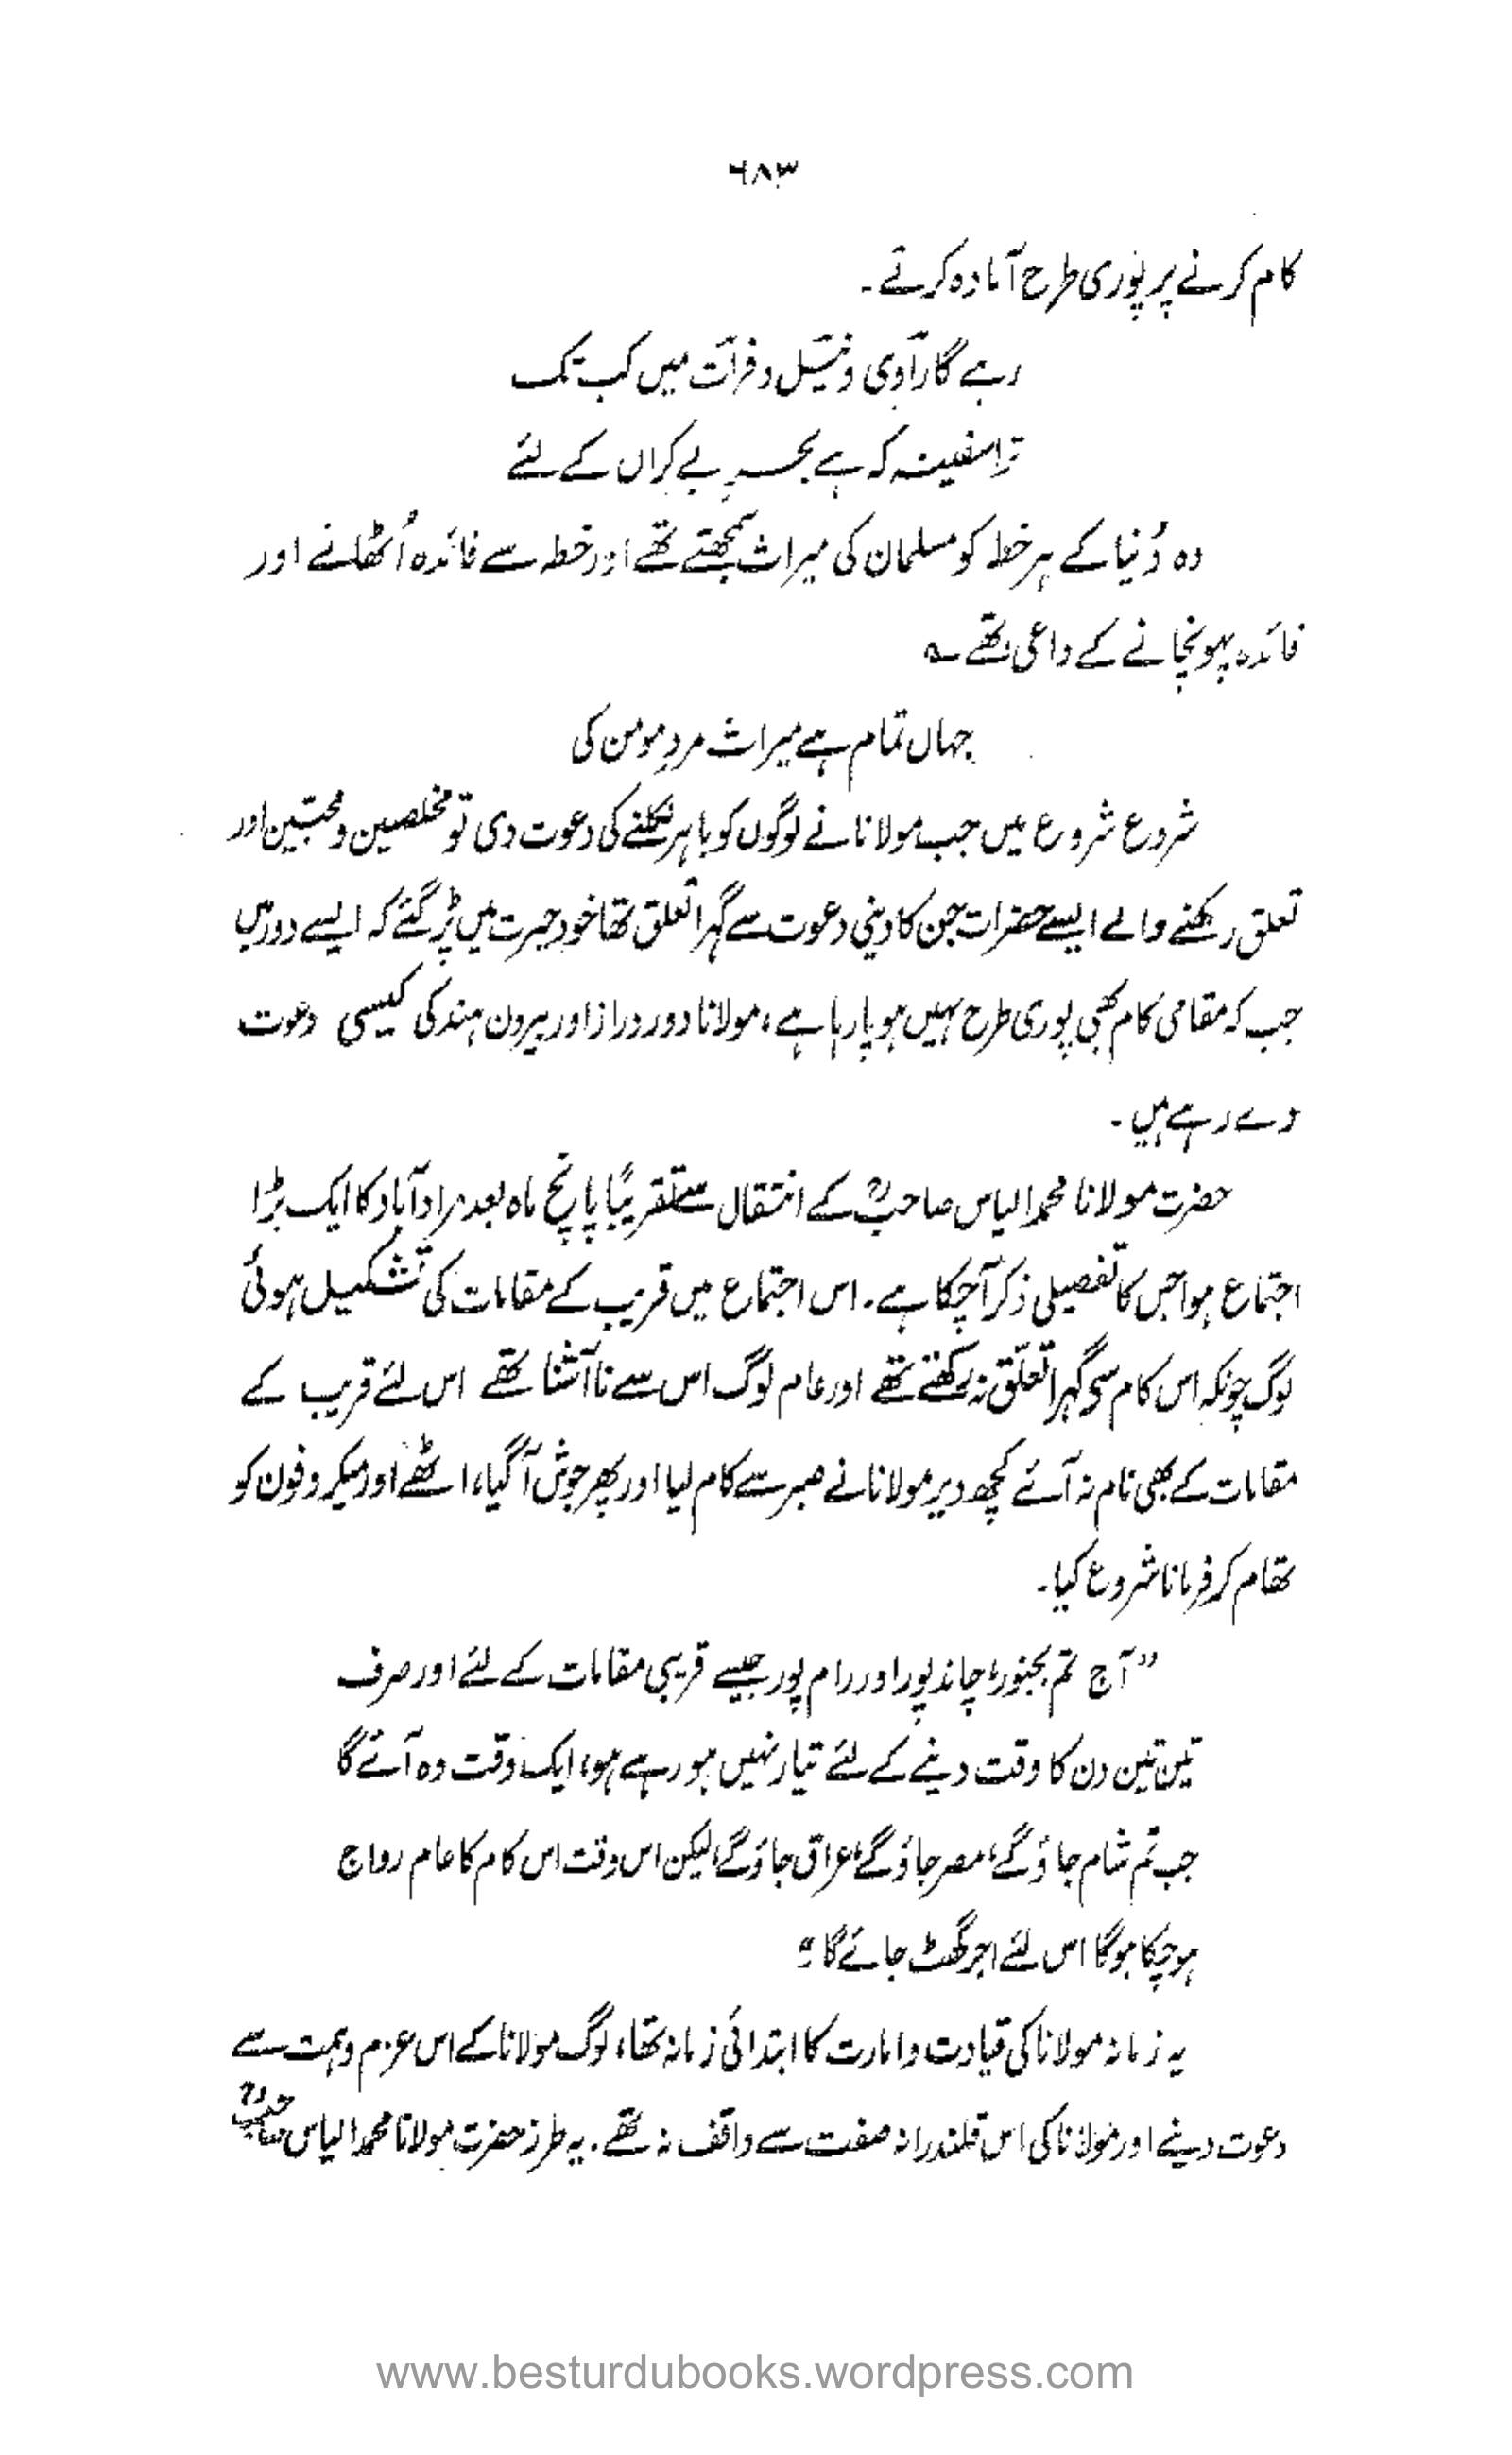 ۶۸۳
کام کرنے پر پوری طرح آمادہ کرتے۔
رہے گا راوی و نیل و فرات میں کب تک
ترا سفینہ کہ ہے بحرِ بے کراں کے لئے
وہ دُنیا کے ہر خطہ کو مسلمان کی میراث سمجھتے تھے اور خطہ سے فائدہ اُٹھانے اور
فائدہ پہونچانے کے داعی تھے ؎
جہاں تمام ہے میراث مردِ مومن کی
شروع شروع میں جب مولانا نے لوگوں کو باہر نکلنے کی دعوت دی تو مخلصین و محبّین اور
تعلق رکھنے والے ایسے حضرات جن کا دینی دعوت سے گہرا تعلق تھا خود حیرت میں پڑ گئے کہ ایسے دور میں
جب کہ مقامی کام بھی پوری طرح نہیں ہو پا رہا ہے، مولانا دور دراز اور بیرون ہند کی کیسی دعوت
دے رہے ہیں۔
حضرت مولانا محمد الیاس صاحبؒ کے انتقال سے تقریبًا پانچ ماہ بعد مراد آباد کا ایک بڑا
اجتماع ہوا جس کا تفصیلی ذکر آچکا ہے۔ اس اجتماع میں قریب کے مقامات کی تشکیل ہوئی
لوگ چونکہ اس کام سے گہرا تعلّق نہ رکھتے تھے اور عام لوگ اس سے ناآشنا تھے اس لئے قریب کے
مقامات کے بھی نام نہ آئے کچھ دیر مولانا نے صبر سے کام لیا اور پھر جوش آگیا، اٹھے اور میکروفون کو
تھام کر فرمانا شروع کیا۔
”آج تم بجنور، چاندپور اور رام پور جیسے قریبی مقامات کے لئے اور صرف
تین تین دن کا وقت دینے کے لئے تیار نہیں ہو رہے ہو، ایک وقت وہ آئے گا
جب تم شام جاؤگے، مصر جاؤگے، عراق جاؤگے، لیکن اس وقت اس کام کا عام رواج
ہوچکا ہوگا اس لئے اجر گھٹ جائے گا۔“
یہ زمانہ مولانا کی قیادت و امارت کا ابتدائی زمانہ تھا، لوگ مولانا کے اس عزم و ہمت سے
دعوت دینے اور مولانا کی اس قلندرانہ صفت سے واقف نہ تھے۔ یہ طرز حضرت مولانا محمد الیاس صاحبؒ
www.besturdubooks.wordpress.com